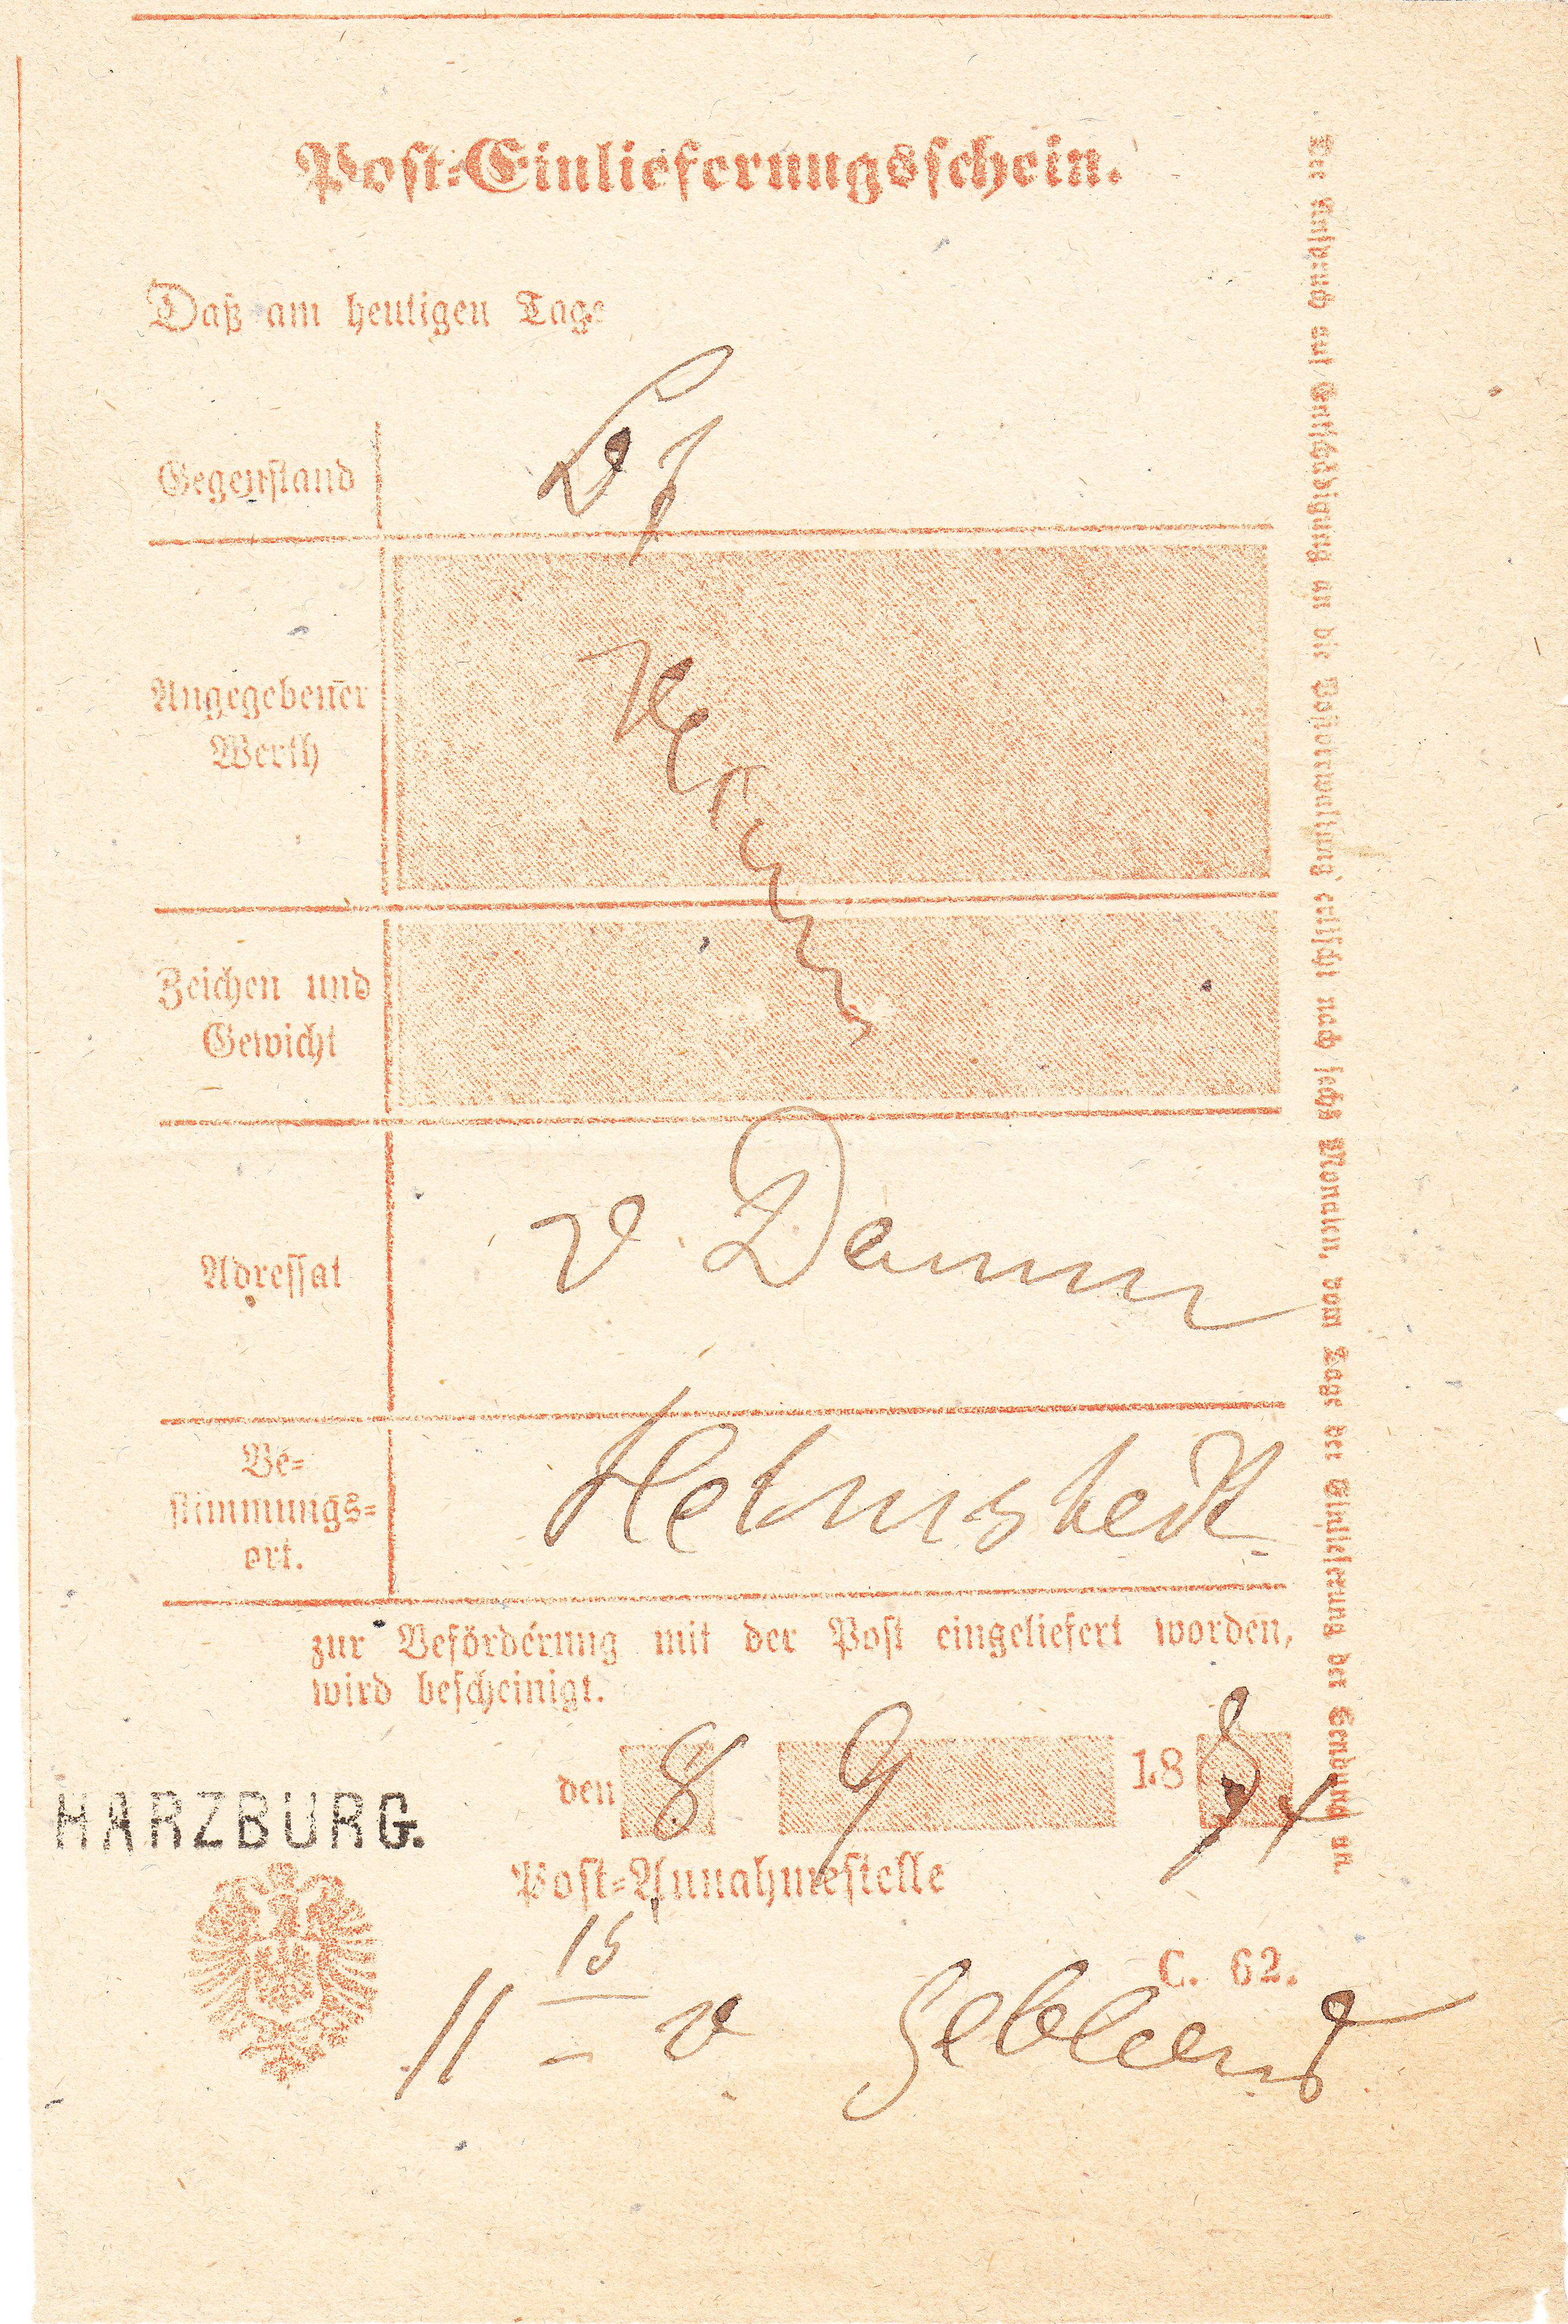 Post-Einlieferungsschein.
Daß am heutigen Tage
Gegenstand
Angegebener
Werth
Zeichen und
Gewicht
Adressat
v. Damm
Be-
stimmungs-
ort.
Helmstedt
zur Beförderung mit der Post eingeliefert worden,
wird bescheinigt.
den 8 9 18
HARZBURG.
Post-Annahmestelle
C. 62.
15
11 v
Der Anspruch auf Entschädigung an die Postverwaltung erlischt nach sechs Monaten, vom Tage der Einlieferung der Sendung an.